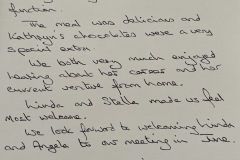 function.
The meal was delicious and
Kathryn's chocolates were a very
special extra.
We both very much enjoyed
hearing about her and her
current venture from home.
Linda and Stella made us feel
most welcome.
We look forward to welcoming Linda
and Angela to our meeting in June.